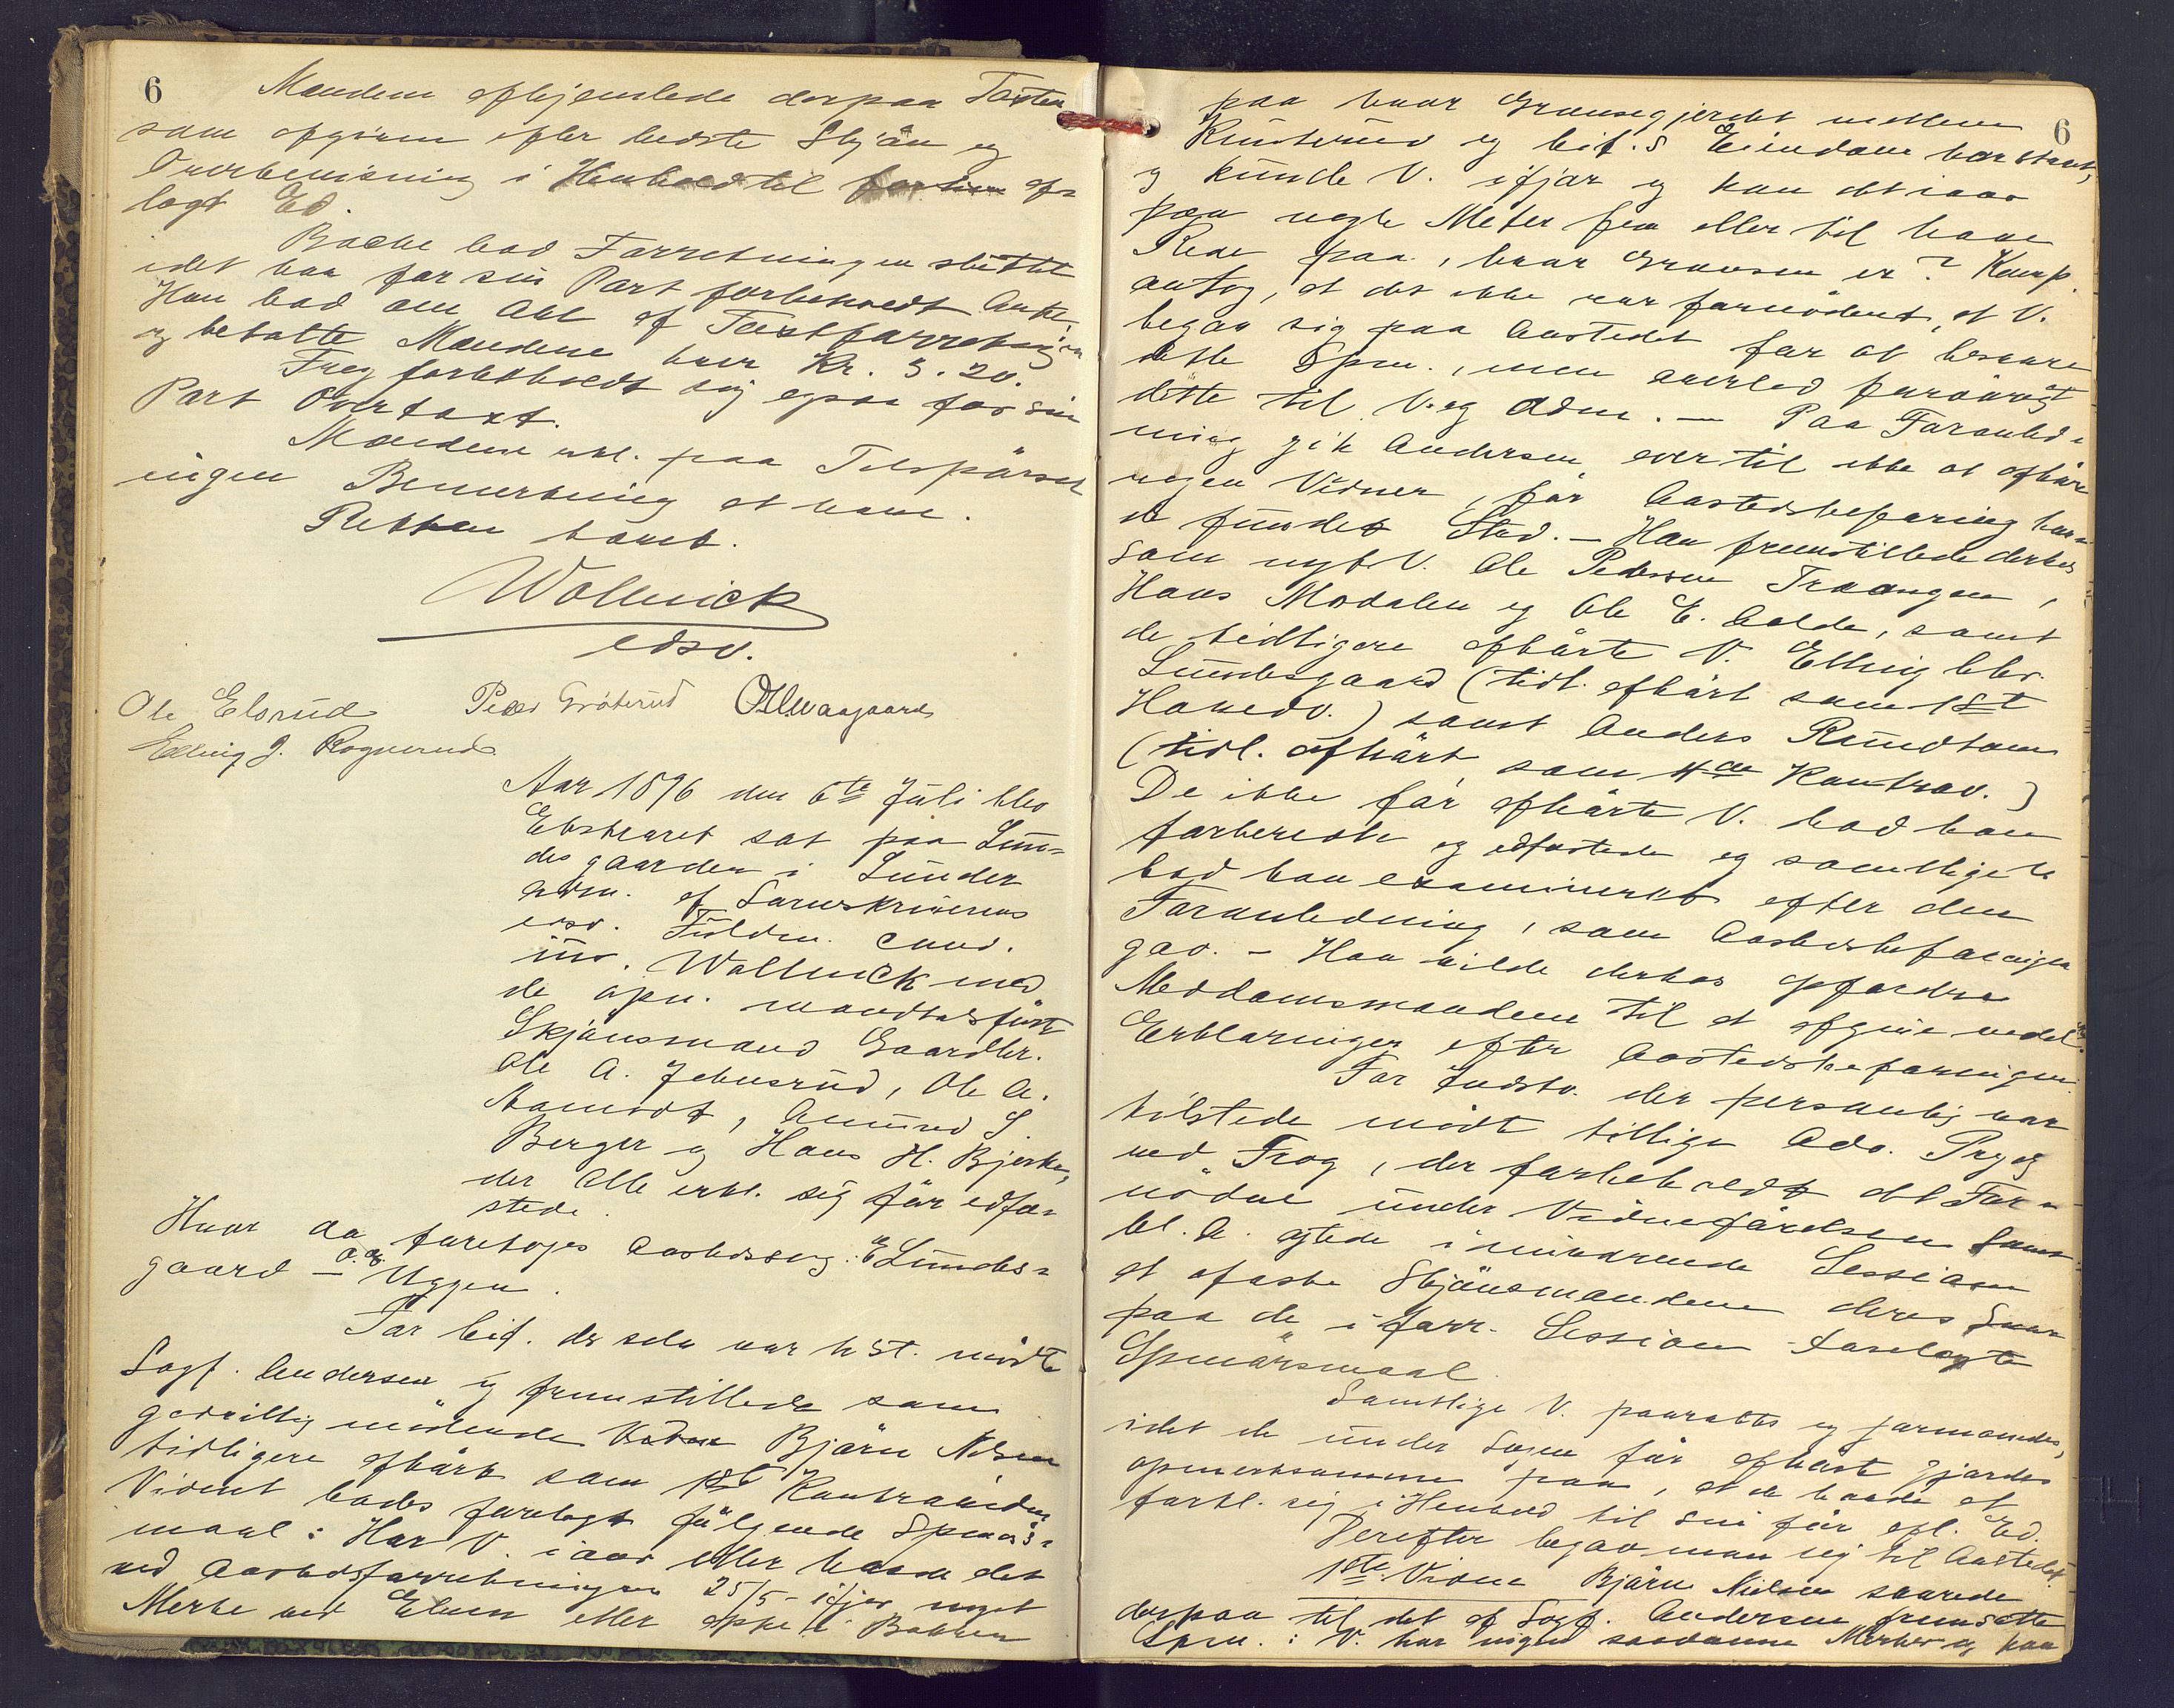 6
Mændene afhjemlede derpaa Taxten
som afgiven efter bedste Skjön og
Overbevisning i Henhold til af-
lagt Ed.
Bache bad Forretningen sluttet
idet han for sin Part forbeholdt Anke.
Han bad om Akt af Taxtforretningen
og betalte Mændene hver Kr. 3.20.
Frog forbeholdt sig ogsaa for sin
Part Overtaxt.
Mændene erkl. paa Tilspörsel
ingen Bemerkning at have.
Retten hævet.
Wollnick
edsv.
Ole Elsrud Peder Gröterud
Elling J. Rognerud
Aar 1896 den 6te Juli blev
Extraret sat paa Lun-
desgaarden i Lunder
adm. af Sorenskriverens
edsv. Fuldm. cand.
jur. Wollnick med
de opn. mandtalsförte
Skjönsmænd Gaardbr.
Ole A. Jehnsrud, Ole A.
Aamodt, Amund S.
Berger og Hans H. Bjerke,
der Alle erkl. sig för edfæ-
stede.
Hvor da foretoges Aastedssag: E Lundes-
gaard — O. Uggen.
For Cit. der selv var tilst. mödte
Sagf. Andersen og fremstillede som
godvillig mödende Vidne Björn Nilsen
tidligere afhört som 1ste Kontravidne
Vidnet bades forelagt fölgende Spörs-
maal: Har V. iaar eller havde det
ved Aastedsforretningen 25/5 ifjor noget
Merke ved Elven eller oppe i Bakken
6
paa hvor Grænsegjerdet mellem
og Cit.s Eiendom har staaet,
og kunde V. ifjor og kan det iaar
paa nogle Meter frem eller til have
Rede paa, hvor Grænsen er? Komp.
antog, at det ikke var fornödent, at V.
begav sig paa Aastedet for at besvare
dette Spm., men overlod forövrigt
dette til V. og Adm. — Paa Foranled-
ning gik Andersen over til ikke at afhöre
nogen Vidner, för Aastedsbefaring hav-
de fundet Sted. — Han fremstillede derhos
som nyt V. Ole Pedersen Traangen,
Hans Modalen og Ole E. Aalde, samt
de tidligere afhörte V. Elling Chr.
Lundesgaard (tidl. afhört som 1st
Hovedv.) samt Anders Rundhom
(tidl. afhört som 4de Kontrav.)
De ikke för afhörte V. bad han
forberedte og edfæstede og samtlige V.
bad han examineret efter den
Foranledning, som Aastedsbefaringen
gav. — Han vilde derhos opfordre
Meddomsmændene til at afgive nedl.
Erklæringer efter Aastedsbefaringen.
For Indstv. der personlig var
tilstede mödt tillige Adv. Pryds
ved Frog, der forbeholdt det For-
nödne under Vidneförelsen
Bl. A. agtede i nærværende Session
at afæske Skjönsmændene deres Svar
paa de i forr. Session forelagte
Spörsmaal.
Samtlige V. paaraabtes og formanedes,
idet de under Sagen för afhörte gjordes
opmerksomme paa, at de havde at
forkl. sig i Henhold til sin för afl. Ed.
Derefter begav man sig til Aastedet.
1ste Vidne Björn Nielsen svarede
derpaa til det af Sagf. Andersen fremsatte
Spm.: V. har ingen saadanne Merker og paa